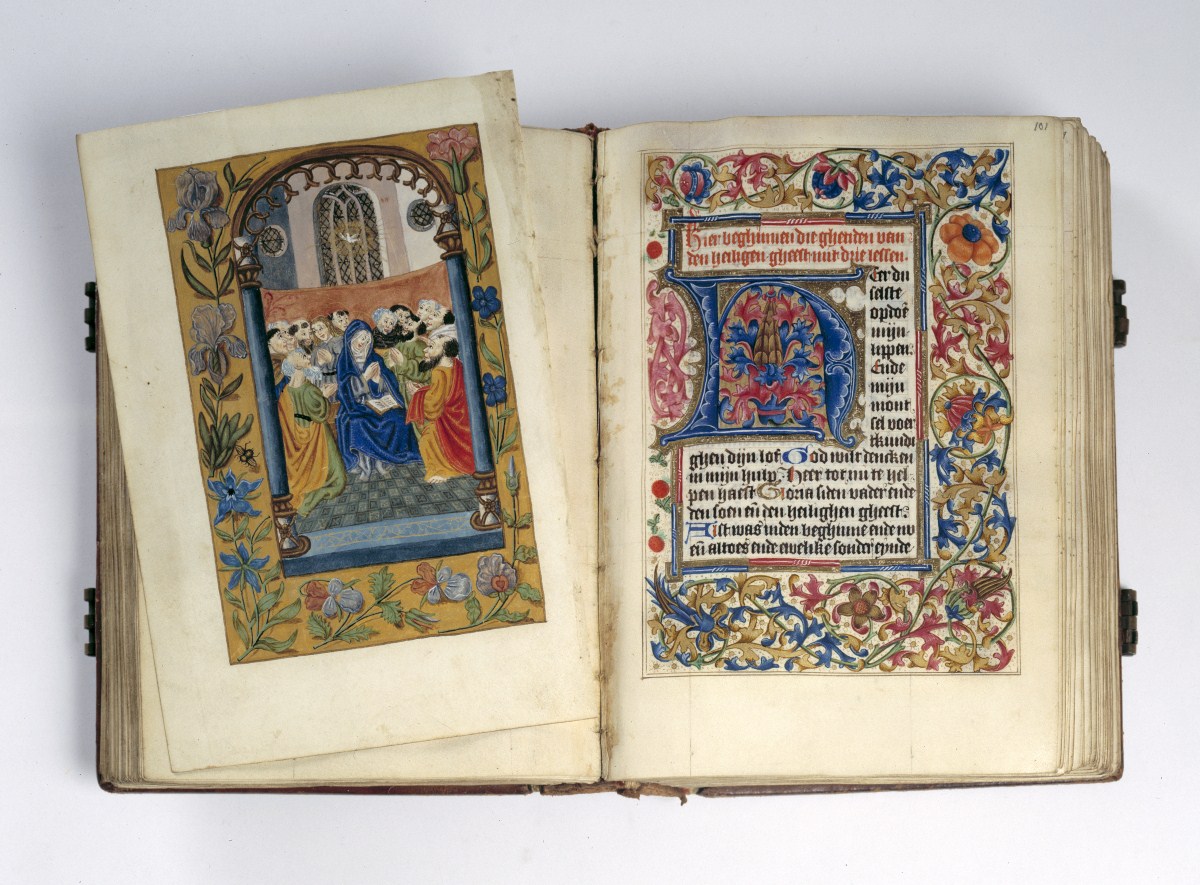 101
Hier beghinnen die ghetiden van
den heiligen gheest mit drie lessen.
Heer du
selste
opdoē
mijn
lippen.
Ende
mijn
mont
sel voer
tkundi
ghen dijn lof. God wilt dencken
in mijn hulp. Heer tot mi te hel
pen haest Gloria si den vader ende
den soen en̄ den heilighen gheest.
Alst was inden beghinne ende nv
en̄ altoes ende ewelike sonder eynde